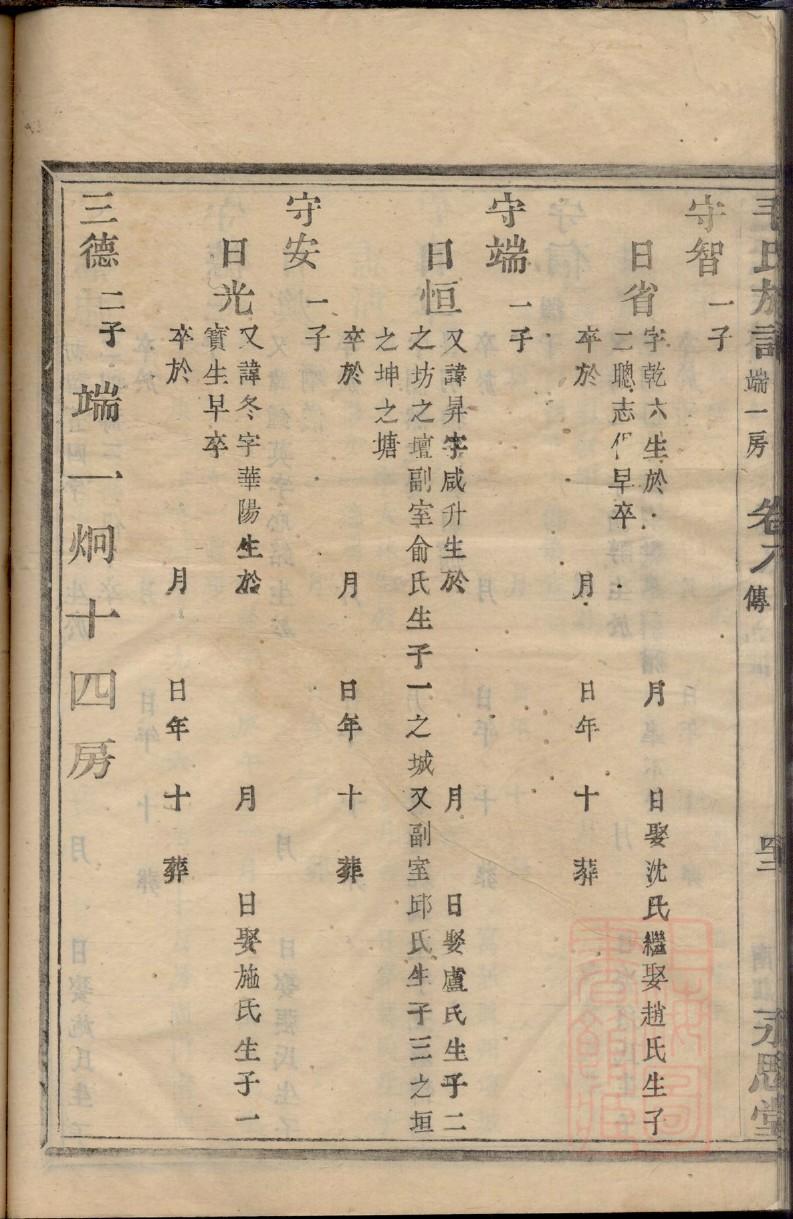 毛氏族譜 端一房 卷 傳 四二 永思堂
守智 一子
日省 字乾六生於 月 日娶沈氏繼娶趙氏生子
二聰志 早卒
卒於 月 日年 十 葬
守端 一子
日恒 又諱昇字咸升生於 月 日娶盧氏生子二
之坊之壇副室俞氏生子一之城又副室邱氏生子三之垣
之坤之塘
卒於 月 日年 十 葬
守安 一子
日光 又諱冬字華陽生於 月 日娶施氏生子一
寶生早卒
卒於 月 日年 十 葬
三德 二子 端一炯十四房